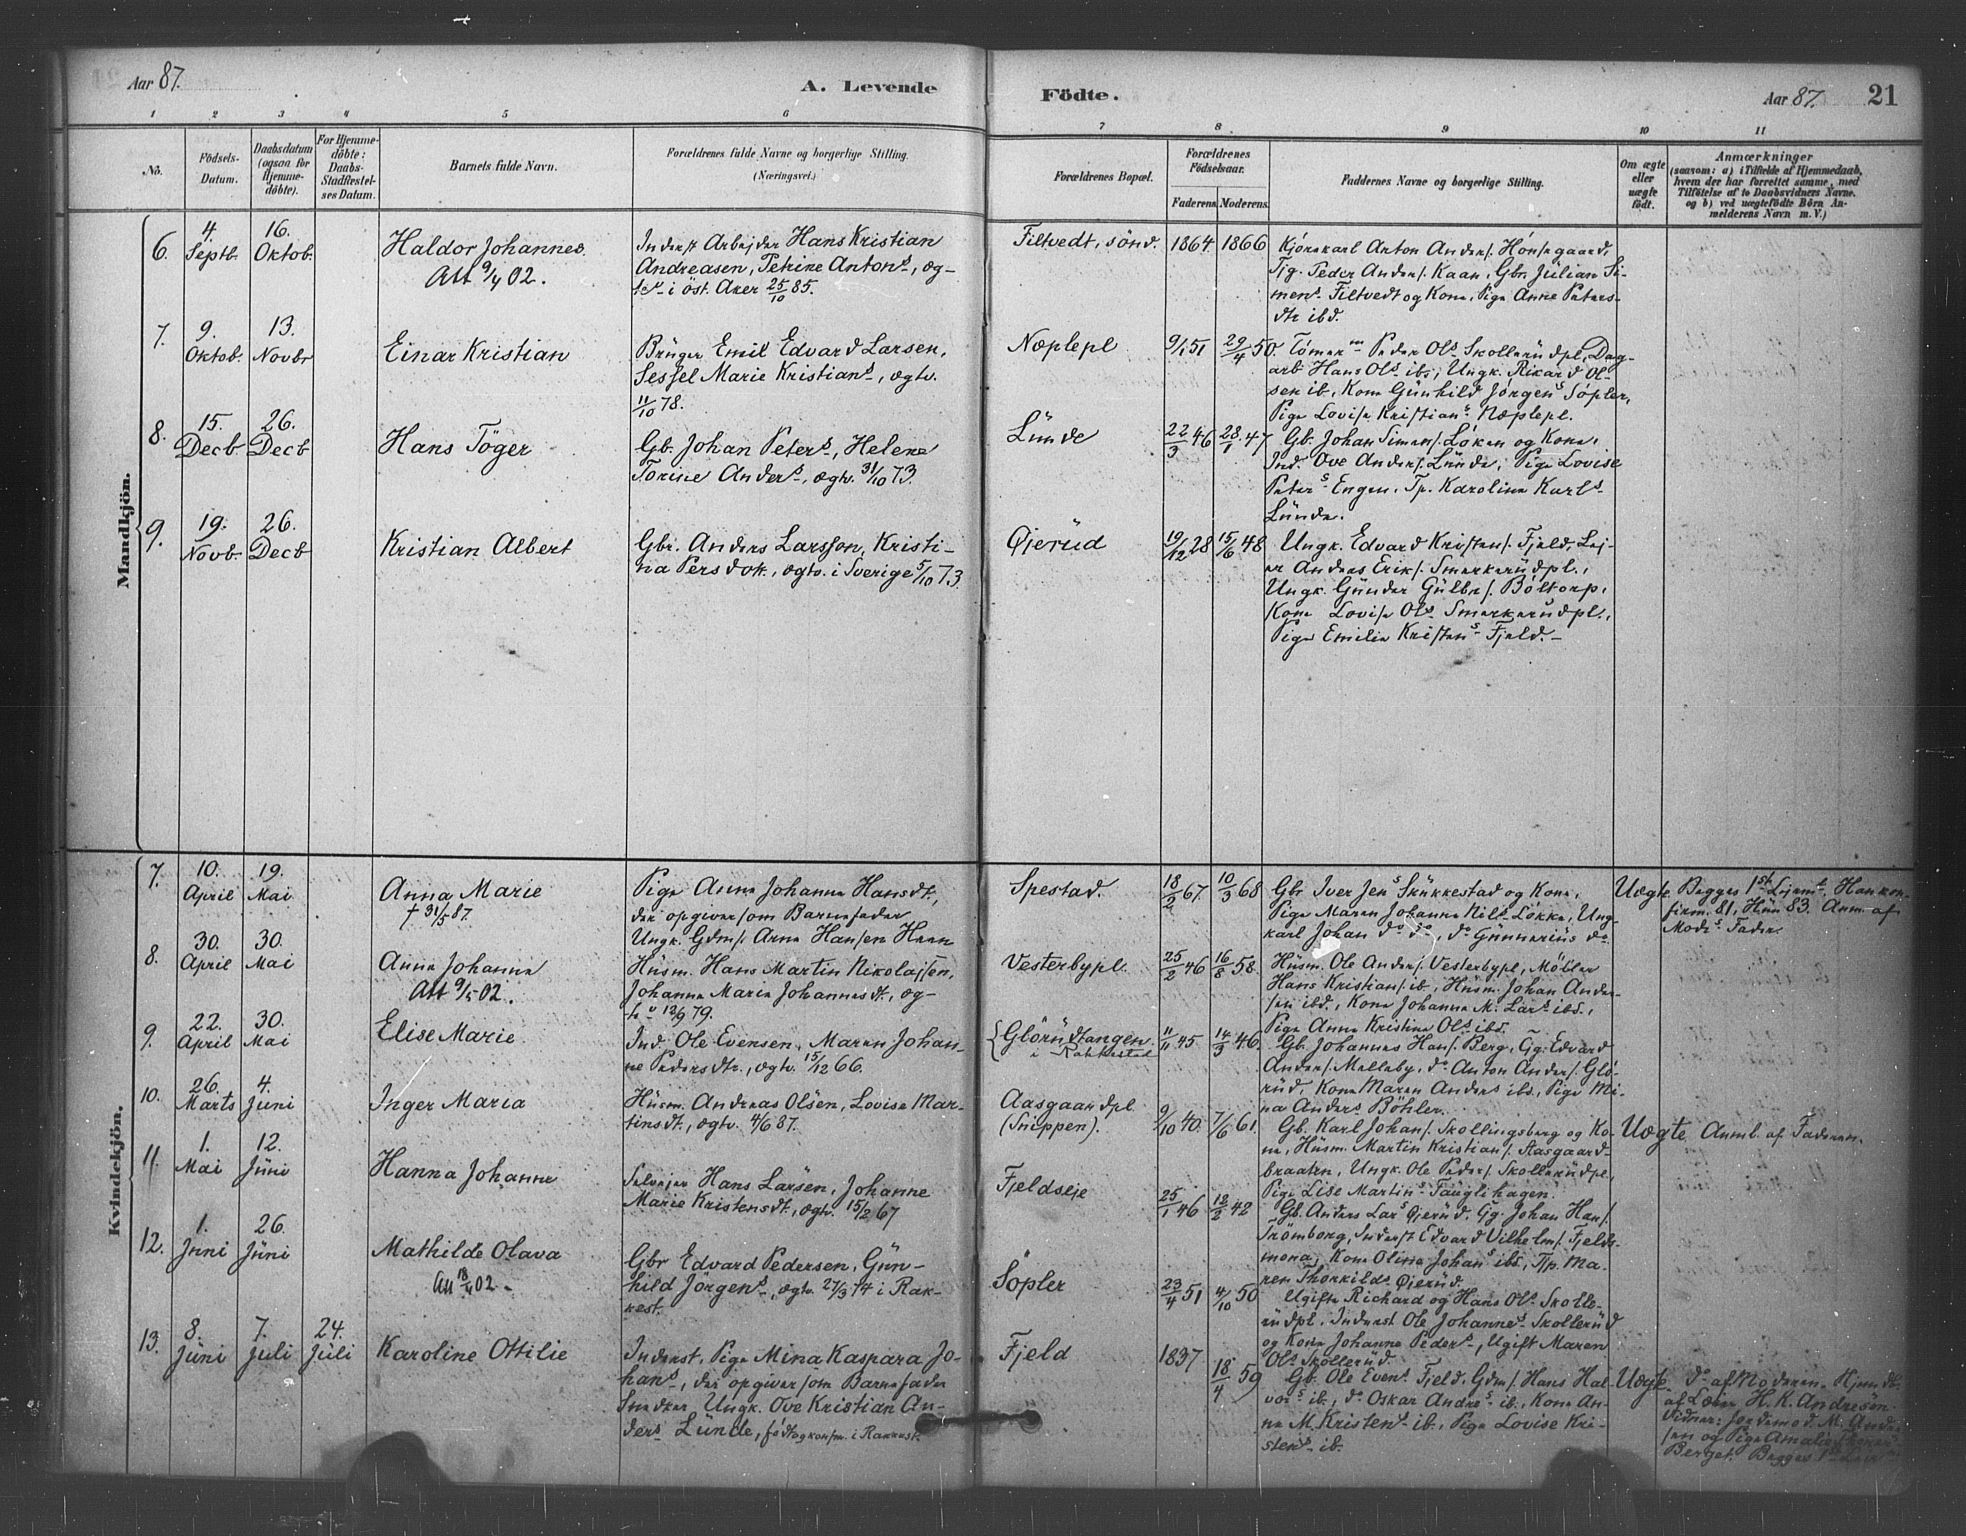 Aar 87.
A. Levende
Födte.
Aar 87.
21
1 2 3 4 5 6 7 8 9 10 11
No.
Födsels-
Datum.
Daabsdatum
(ogsaa for
Hjemme-
döbte).
For Hjemme-
döbte:
Daabs-
Stadfæstel-
ses Datum.
Barnets fulde Navn.
Forældrenes fulde Navne og borgerlige Stilling.
(Næringsvei.)
Forældrenes Bopæl.
Forældrenes
Födselsaar.
Faderens. Moderens.
Faddernes Navne og borgerlige Stilling.
Om ægte
eller
uægte
födt.
Anmærkninger
(saasom: a) i Tilfælde af Hjemmedaab,
hvem der har forrettet samme, med
Tilföielse af to Daabsvidners Navne.
og b) ved uægtefödte Börn An-
melderens Navn m. V.)
Mandkjön.
6.
4
Septb.
16.
Oktob.
Haldor Johannes.
Att 9/4 02.
Inderst Arbejder Hans Kristian
Andreasen, Petrine Antons, æg-
i öst. Aker 25/10 85.
Filtvedt, sönd.
1864
1866
Kjörekarl Anton Anders. Hönsegaard,
Tjg. Peder Anders. Kaan, Gbr. Julian Si-
mens Filtvedt og Kone, Pige Anne Peters-
dtr ibd.
7.
9.
Oktob.
13.
Novbr
Einar Kristian
Bruger Emil Edvard Larsen,
Sessel Marie Kristians, ægtv.
11/10 78.
Næplepl
9/1 51
29/4 50.
Tömerm Peder Ols Skollerudpl, Dag-
arb Hans Ols ibs, Ungk. Rikard Ol-
sen ib, Kone Gunhild Jörgens Söpler,
Pige Lovise Kristians Næplepl.
8.
15.
Decb
26.
Decb
Hans Töger
Gb. Johan Peters, Helene
Torine Anders, ægtv. 31/10 73.
Lunde
22/3 46
28/1 47
Gb. Johan Simens. Löken og Kone,
Ind. Ove Anders. Lunde, Pige Lovise
Peters Engen, Tp. Karoline Karls
Lunde.
9.
19.
Novb.
26.
Decb
Kristian Albert
Gbr. Anders Larsson, Kristi-
na Persdok., ægtv. i Sverige 5/10 73.
Öjerud
19/12 28
15/6 48
Ungk. Edvard Kristens. Fjeld, Lej-
er Anders Eriks. Smerkerudpl.,
Ungk. Gunder Gulbr. Böltorp,
Kone Lovise Ols Smerkerudpl.,
Pige Emilie Kristens Fjeld.
Kvindekjön.
7.
10.
April
19.
Mai
Anna Marie
† 31/5 87.
Pige Anna Johanne Hansdt.,
der opgiver som Barnefader
Ungk. Gdms. Arne Hansen Haan
Spestad.
18/2 67.
10/3 68
Gbr Iver Jens Skukkestad og Kone,
Pige Maren Johanne Nils Lökke, Ung-
karl Johan do do, do Gunnarius do
Uægte
Begges 1st Lejerm. Han kon-
firm. 81, Hun 83. Anm. af
Mods Fader.
8.
30.
April
30.
Mai
Anna Johanna
Att 9/5 02.
Husm. Hans Martin Nikolajsen,
Johanne Marie Johannesdt, æg-
tv 13/9 79.
Vesterbypl.
25/2 46
16/8 58.
Husm. Ole Anders. Vesterbypl, Möller
Hans Kristians. ib, Husm. Johan Ander-
sen ibd, Kone Johanne M. Lars ibs.,
Pige Anne Kristine Ols ibs.
9.
22.
April
30.
Mai
Elise Marie
Ind. Ole Evensen, Maren Johan-
ne Pedersdtr., ægtv. 15/12 66.
Glörudtangen.
i Rakkestad
11/11 45
14/3 46.
Gb. Johannes Hans. Berg, Gg. Edvard
Anders. Melleby, do Anton Anders. Glö-
rud, Kone Maren Anders ibs, Pige Mi-
na Anders Böhler.
10.
26.
Marts
4.
Juni
Inger Maria
Husm. Andreas Olsen, Lovise Mar-
tinsdt., ægtv. 4/6 87.
Aasgaardpl.
(Snippen).
9/10 40.
7/6 61.
Gb. Karl Johans. Skollingsberg og Ko-
ne, Husm. Martin Kristians. Aasgaard-
braaten, Ungk. Ole Peders. Skollerudpl,
Pige Lise Martins Tauglihagen.
Uægte
Anml. af Faderen.
11.
1.
Mai
12.
Juni
Hanna Johanne
Selvejer Hans Larsen, Johanne
Marie Kristensdt., ægtv. 15/2 67
Fjeldseje
25/1 46
12/2 42
Gb. Anders Lars Öjerud, Gg. Johan Hans.
Trömborg, Inderst Edvard Vilhelms. Fjelds-
mona, Kone Olina Johans ibs, Tjp. Ma-
ren Thorkilds Öjerud.
12.
1.
Juni
26.
Juni
Mathilde Olava
Att 13/4 02 -
Gbr Edvard Pedersen, Gun-
hild Jörgens, ægtv. 27/3 74 i Rak-
kest.
Söpler
23/4 51
4/10 50
Ugifte Richard og Hans Ols Skolle-
rudpl. Inderst Ole Johannes Skollerud
og Kone Johanne Peders, Ugift Maren
Ols Skollerud
13.
8.
Juni
7.
Juli
24.
Juli
Karoline Ottilie
Inderst, Pige Mina Kaspara Jo-
hans, der opgiver som Barnefader
Snedker, Ungk. Ove Kristian An-
ders Lunde, födt og konfm. i Rakkest.
Fjeld
1837
18/4 59
Gb. Ole Evens. Fjeld, Gdms. Hans Hal-
vors ib., do Oskar Andrs ib., Kone An-
ne M. Kristens ib., Pige Lovise Kri-
stens ib.
Uægte
do af Moderen. Hjemdbt.
af Lærer H. K. Andresen.
Vidner: Jordemod. M. Ander-
sen og Pige Amalie
Berget. Begges